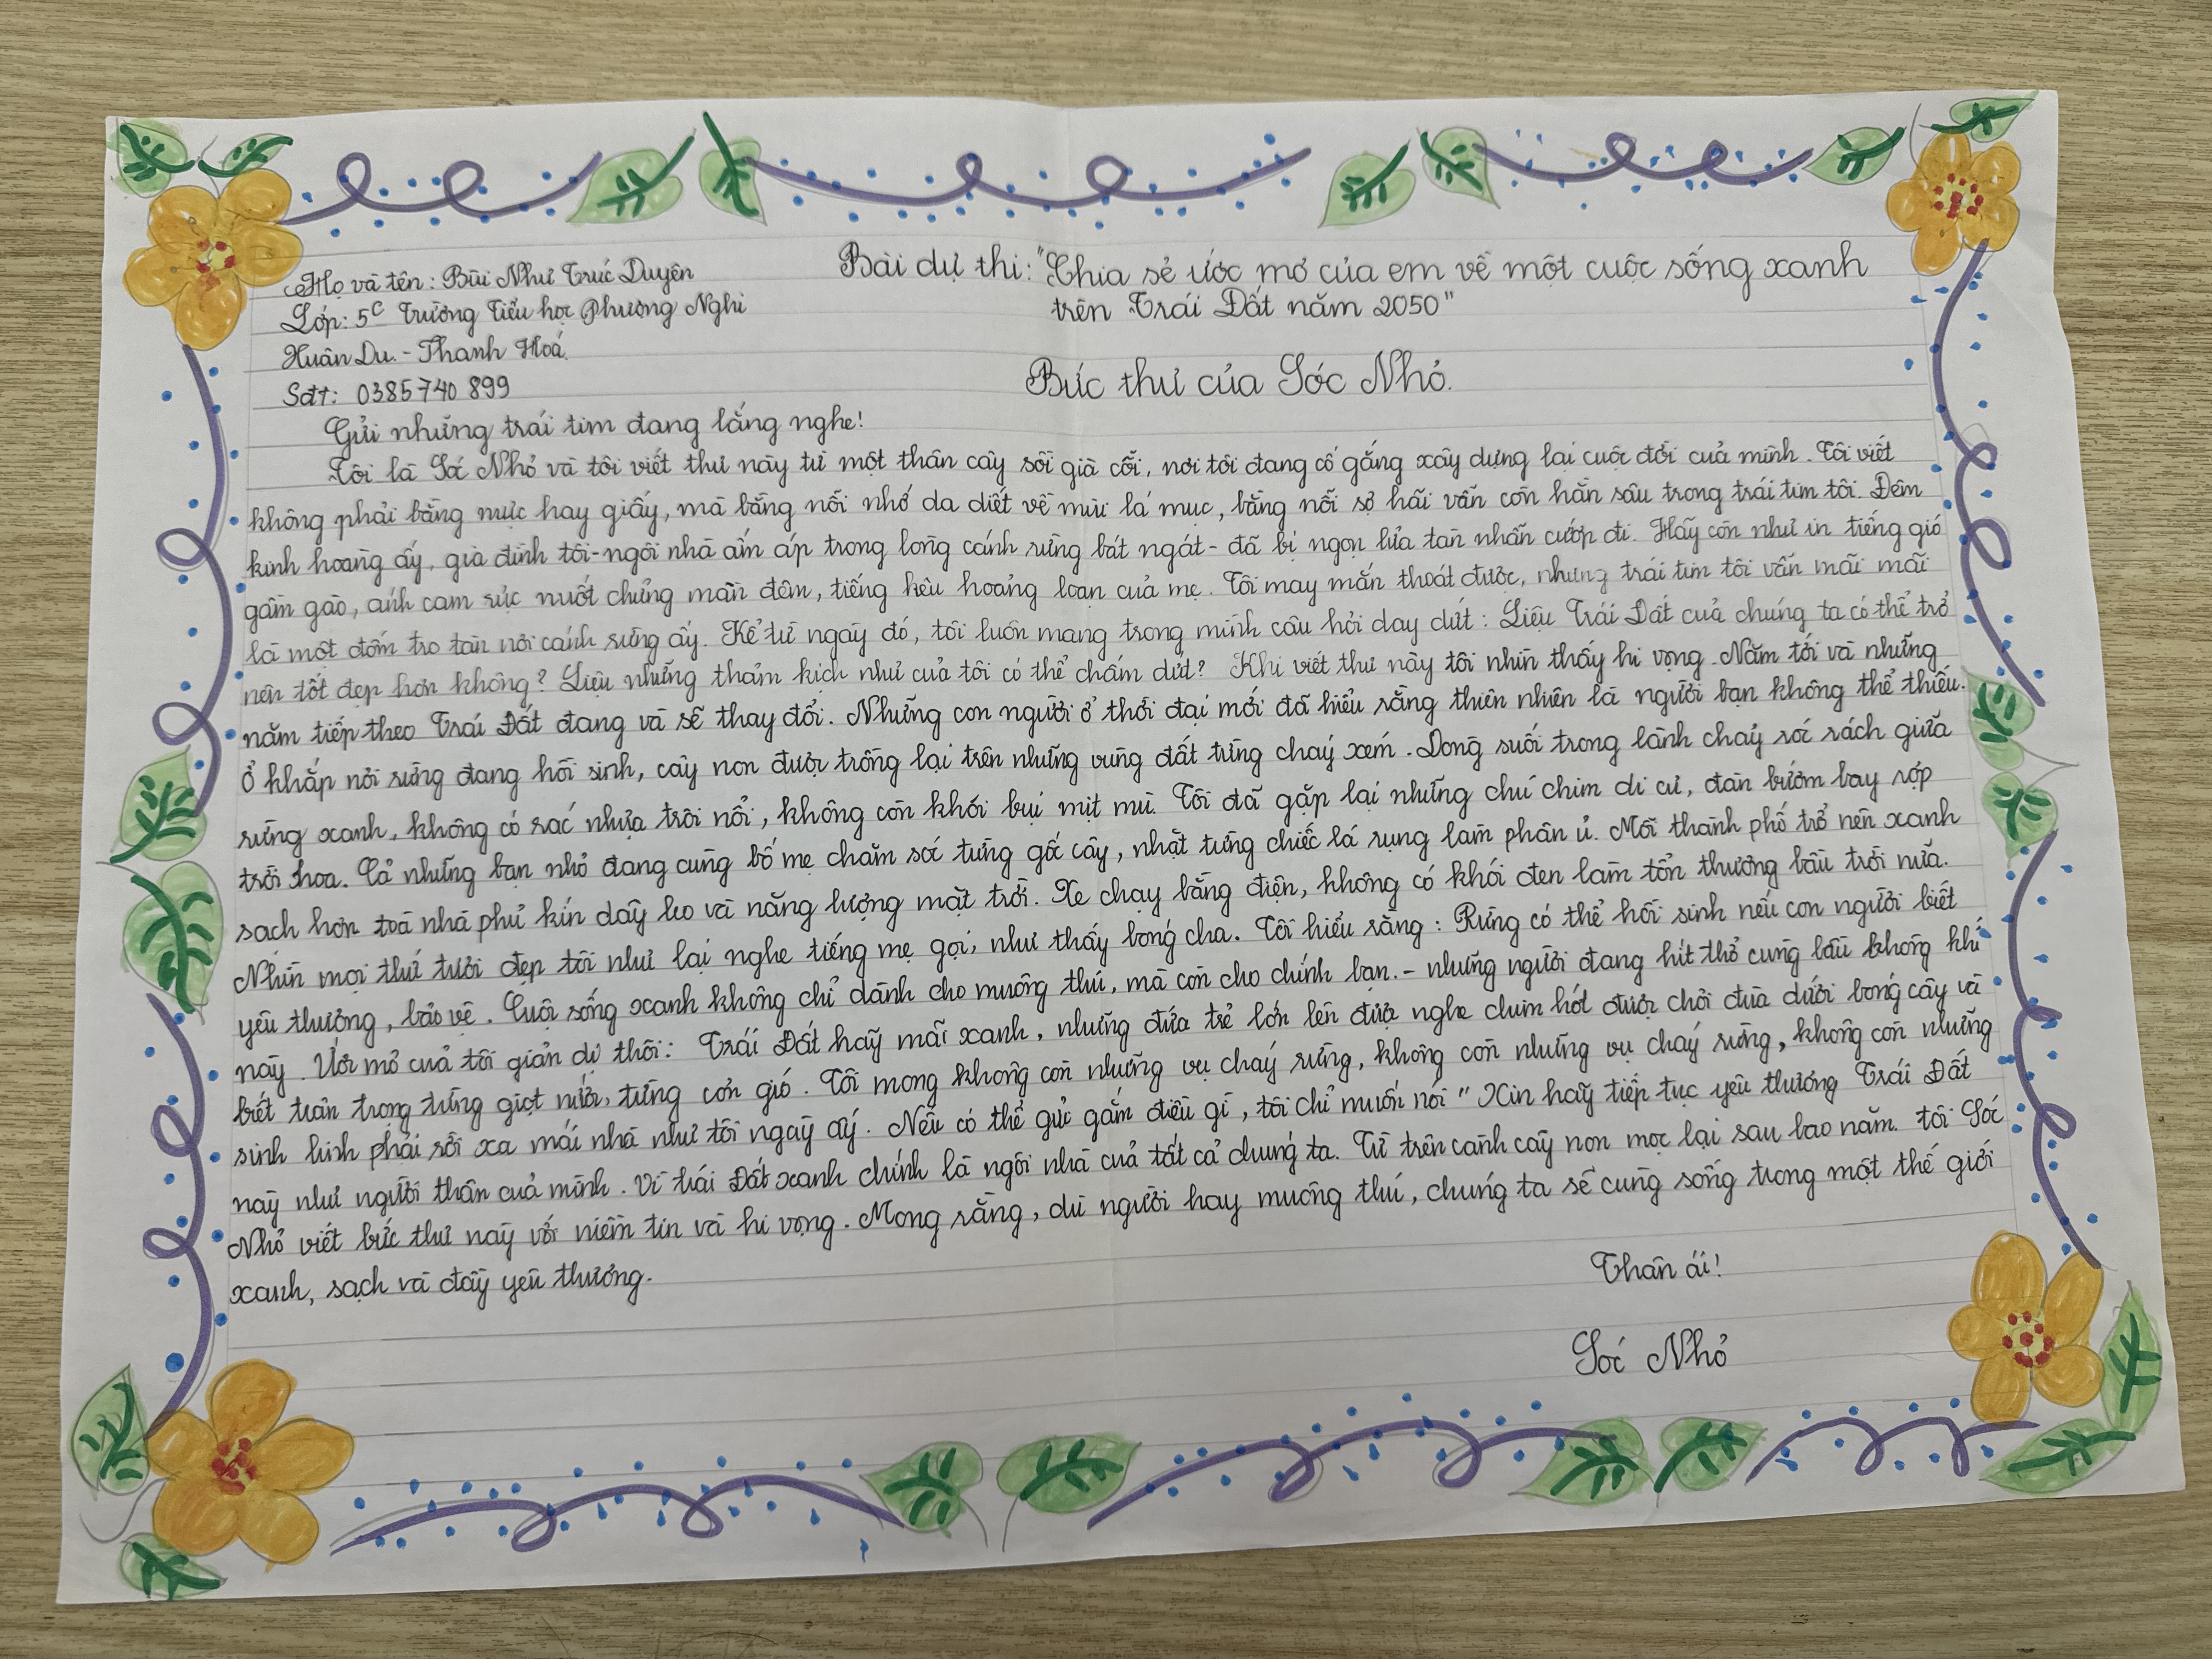 Họ và tên: Bùi Như Trúc Duyên
Lớp: 5C Trường Tiểu học Phượng Nghi
Xuân Du - Thanh Hoá
Sđt: 0385740 899
Bài dự thi: "Chia sẻ ước mơ của em về một cuộc sống xanh
trên Trái Đất năm 2050"
Bức thư của Sóc Nhỏ.
Gửi những trái tim đang lắng nghe!
Tôi là Sóc Nhỏ và tôi viết thư này từ một thân cây sồi già cỗi, nơi tôi đang cố gắng xây dựng lại cuộc đời của mình. Tôi viết
không phải bằng mực hay giấy, mà bằng nỗi nhớ da diết về mùi lá mục, bằng nỗi sợ hãi vẫn còn hằn sâu trong trái tim tôi. Đêm
kinh hoàng ấy, gia đình tôi-ngôi nhà ấm áp trong lòng cánh rừng bát ngát- đã bị ngọn lửa tàn nhẫn cướp đi. Hãy còn như in tiếng gió
gầm gào, ánh cam rực nuốt chửng màn đêm, tiếng kêu hoảng loạn của mẹ. Tôi may mắn thoát được, nhưng trái tim tôi vẫn mãi mãi
là một đốm tro tàn nơi cánh rừng ấy. Kể từ ngày đó, tôi luôn mang trong mình câu hỏi day dứt: Liệu Trái Đất của chúng ta có thể trở
nên tốt đẹp hơn không? Liệu những thảm kịch như của tôi có thể chấm dứt? Khi viết thư này tôi nhìn thấy hi vọng. Năm tới và những
năm tiếp theo Trái Đất đang và sẽ thay đổi. Những con người ở thời đại mới đã hiểu rằng thiên nhiên là người bạn không thể thiếu.
Ở khắp nơi rừng đang hồi sinh, cây non được trồng lại trên những vùng đất từng cháy xém. Dòng suối trong lành chảy róc rách giữa
rừng xanh, không có rác nhựa trôi nổi, không còn khói bụi mịt mù. Tôi đã gặp lại những chú chim di cư, đàn bướm bay rợp
trời hoa. Cả những bạn nhỏ đang cùng bố mẹ chăm sóc từng gốc cây, nhặt từng chiếc lá rụng làm phân ủ. Mỗi thành phố trở nên xanh
sạch hơn toà nhà phủ kín dây leo và năng lượng mặt trời. Xe chạy bằng điện, không có khói đen làm tổn thương bầu trời nữa.
Nhìn mọi thứ tươi đẹp tôi như lại nghe tiếng mẹ gọi, như thấy bóng cha. Tôi hiểu rằng: Rừng có thể hồi sinh nếu con người biết
yêu thương, bảo vệ. Cuộc sống xanh không chỉ dành cho muông thú, mà còn cho chính bạn.- những người đang hít thở cùng bầu không khí
này. Ước mơ của tôi giản dị thôi: Trái Đất hãy mãi xanh, những đứa trẻ lớn lên được nghe chim hót được chơi đùa dưới bóng cây và
biết trân trọng từng giọt nước, từng cơn gió. Tôi mong không còn những vụ cháy rừng, không còn những vụ cháy rừng, không còn những
sinh linh phải rời xa mái nhà như tôi ngày ấy. Nếu có thể gửi gắm điều gì, tôi chỉ muốn nói " Xin hãy tiếp tục yêu thương Trái Đất
này như người thân của mình. Vì trái Đất xanh chính là ngôi nhà của tất cả chúng ta. Từ trên cành cây non mọc lại sau bao năm. tôi Sóc
Nhỏ viết bức thư này với niềm tin và hi vọng. Mong rằng, dù người hay muông thú, chúng ta sẽ cùng sống trong một thế giới
xanh, sạch và đầy yêu thương.
Thân ái!
Sóc Nhỏ